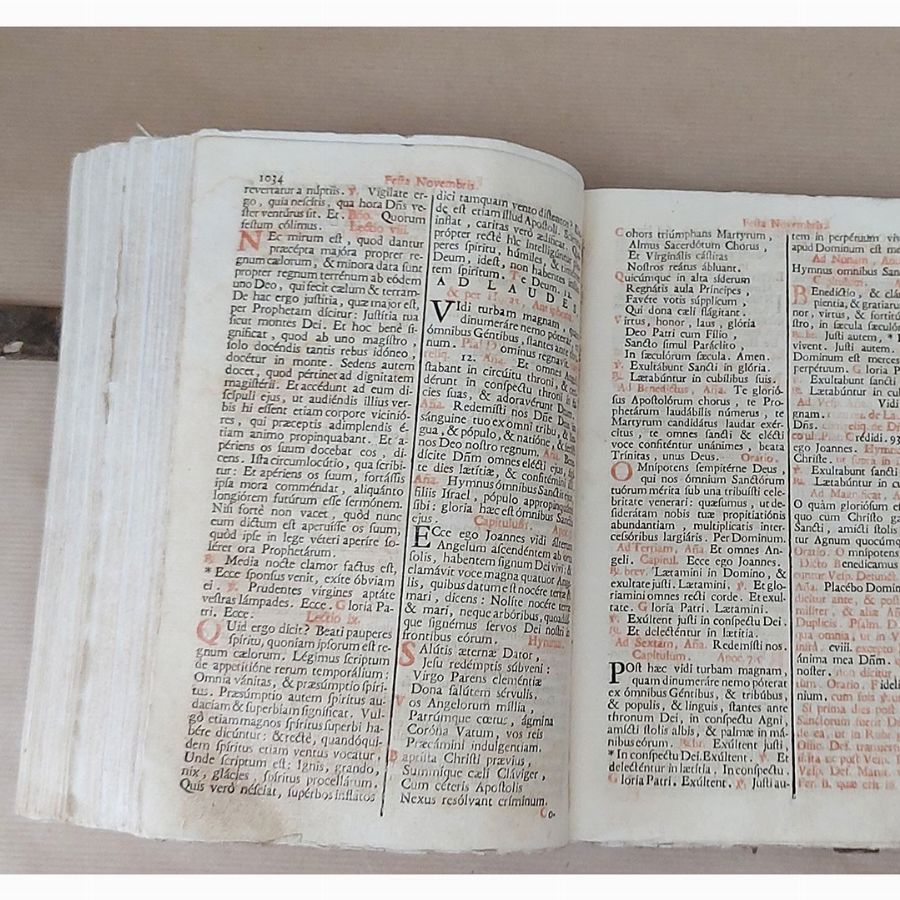 1034 Festa Novembris.
revertatur a nuptiis. ℣. Vigilate er-
go, quia nescitis, qua hora Dñs ve-
ster ventúrus sit. Et. Bño. Quorum
festum cólimus. Lectio viii.
NEc mirum est, quod dantur
præcépta majóra propter re-
gnum cælorum, & minora data sunt
propter regnum terrénum ab eódem
uno Deo, qui fecit cælum & terram-
De hac ergo justitia, quæ major est,
per Prophetam dícitur: Justitia tua
sicut montes Dei. Et hoc benè si-
gnificat, quod ab uno magistro
solo docéndis tantis rebus idóneo,
docétur in monte. Sedens autem
docet, quod pértinet ad dignitatem
magistérii. Et accédunt ad eum di-
scípuli ejus, ut audiéndis illíus ver-
bis hi essent etiam corpore viciniô-
res, qui præceptis adimplendis é-
tiam animo propinquabant. Et a-
périens os suum docebat eos, di-
cens. Ista circumlocútio, qua scríbi-
tur: Et apériens os suum, fortássis
ipsa mora comméndat, aliquánto
longiórem futúrum esse sermónem.
Nisi fortè non vacet, quòd nunc
eum dictum est aperuísse os suum,
quòd ipse in lege véteri aperíre so-
léret ora Prophetárum.
℟. Media nocte clamor factus est,
* Ecce sponsus venit, exíte óbviam
ei. ℣. Prudentes virgines aptáte
vestras lámpades. Ecce. Gloria Pa-
tri. Ecce. Lectio ix.
QUid ergo dicit? Beati pauperes
spíritu, quoniam ipsorum est re-
gnum cælorum. Légimus scriptum
de appetitióne rerum temporálium:
Omnia vánitas, & præsúmptio spíri-
tus. Præsúmptio autem spíritus au-
daciam & superbiam significat. Vul-
gò etiam magnos spíritus superbi ha-
bére dicúntur: & rectè, quandóqui-
dem spíritus etiam ventus vocatur,
Unde scriptum est: Ignis, grando,
nix, glácies, spíritus procellárum.
Quis verò nésciat, supérbos inflatos
dici tamquam vento distentos?
de est etiam illud Apostoli:
inflat, caritas verò ædíficat.
própter rectè hîc intelligúntur
peres spíritu, húmiles, & timéntes
Deum, idest, non habéntes inflán-
tem spíritum. Te Deum. 12.
AD LAUDES,
& per Horas, Antiphona.
VIdi turbam magnam, quam
dinumeráre nemo póterat,
ómnibus Géntibus, stantes ante
num. Psal. Dominus regnavit.
reliq. 12. Aña. Et omnes Angeli
stabant in circúitu throni, & ceci-
dérunt in conspéctu throni in fa-
cies suas, & adoravérunt Deum.
Aña. Redemísti nos Dñe Deus in
sánguine tuo ex omni tribu, & lin-
gua, & pópulo, & natióne, & fecísti
nos Deo nostro regnum. Aña. Bene-
dícite Dñm omnes elécti ejus, ági-
te dies lætítiæ, & confitémini illi.
Aña. Hymnus ómnibus Sanctis ejus
fíliis Israel, pópulo appropinquánti
sibi: gloria hæc est ómnibus Sanctis
ejus. Capítulum. Apoc. 7.
ECce ego Joannes vidi álterum
Angelum ascendéntem ab ortu
solis, habentem signum Dei vivi: &
clamávit voce magna quatuor Ange-
lis, quibus datum est nocére terræ &
mari, dicens: Nolíte nocére terræ
& mari, neque arbóribus, quoadús-
que signémus servos Dei nostri in
frontibus eórum. Hymnus.
SAlútis æternæ Dator,
Jesu redémptis súbveni:
Virgo Parens cleméntiæ
Dona salútem sérvulis.
Vos Angelorum míllia,
Patrúmque cœtus, ágmina
Coróna Vatum, vos reis
Præcámini indulgentiam.
Baptista Christi prævius,
Summíque cæli Cláviger,
Cum céteris Apostolis
Nexus resólvant críminum.
Co-
Festa Novembris.
Cohors triúmphans Martyrum,
Almus Sacerdótum Chorus,
Et Virginális cástitas
Nostros reátus ábluant.
Quicúmque in alta síderum
Regnátis aula Príncipes,
Favéte votis súpplicum,
Qui dona cæli flágitant.
Virtus, honor, laus, glória
Deo Patri cum Fílio,
Sancto simul Paráclito
In sæculórum sæcula. Amen.
℣. Exultábunt Sancti in glória.
℟. Lætabúntur in cubílibus suis.
Ad Benedictus, Aña. Te glorió-
sus Apostolórum chorus, te Pro-
phetárum laudábilis númerus, te
Martyrum candidátus laudat exér-
citus, te omnes sancti & elécti
voce confiténtur unánimes, beata
Trinitas, unus Deus. Oratio.
OMnípotens sempitérne Deus,
qui nos ómnium Sanctórum
tuórum mérita sub una tribuísti cele-
oritate venerari: quæsumus, ut de-
siderátam nobis tuæ propitiatiónis
abundantiam, multiplicatis inter-
cessóribus largiáris. Per Dominum.
Ad Tertiam, Aña. Et omnes An-
geli. Capitul. Ecce ego Joannes.
℟. brev. Lætamini in Domino, &
exultate justi. Lætamini. ℣. Et glo-
riamini omnes recti corde. Et exul-
tate. Gloria Patri. Lætamini.
℣. Exúltent justi in conspéctu Dei.
℟. Et delectentur in lætitia.
Ad Sextam, Aña. Redemisti nos.
Capitulum. Apoc. 7.
POst hæc vidi turbam magnam,
quam dinumeráre nemo póterat
ex ómnibus Géntibus, & tribúbus,
& populis, & linguis, stantes ante
thronum Dei, in conspéctu Agni,
amícti stolis albis, & palmæ in má-
nibus eórum. Exúltent justi,
* In conspectu Dei. Exúltent. ℣. Et
delecténtur in lætítia, In conspectu.
Gloria Patri. Exúltent. ℣. Justi au-
tem in perpétuum
apud Dominum est
Ad Nonam, Aña.
Hymnus omnibus
Capitulum.
BEnedíctio, & clá-
pientia, & gratiarum
nor, virtus, & fortitú-
stro, in sæcula sæculó-
Justi autem, *
vivent. Justi autem.
Dominum est merces
perpétuum. Gloria
℣. Exultabunt sancti
℟. Lætabúntur in
Ad Vesp. Aña. Vidi
gnam.
Dñs.
Crédidi.
Aña. Hymnus
Christe.
℣. Exultabunt Sancti
℟. Lætabúntur in
Ad Magnificat,
O quàm gloriósum
quo cum Christo
Sancti, amícti stolis
tur Agnum quocúmque
Oratio. Omnípotens
Dicto Benedicamus
Aña. Placébo Domino
Duplicis. Psalm.
ánima mea Dñm.
noster. non dicitur
tum. Oratio. Fidelium
Si prima dies post